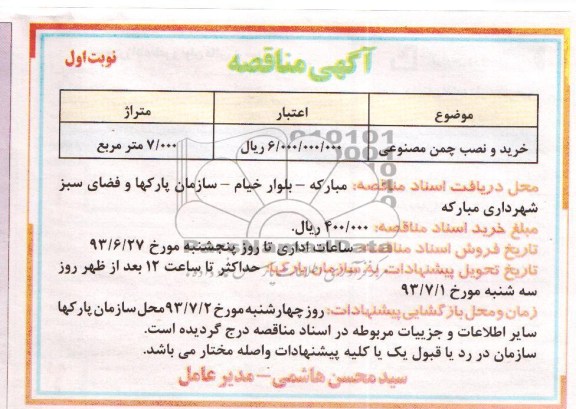 آگهی مناقصه
نوبت اول
موضوع اعتبار متراژ
خرید و نصب چمن مصنوعی ۶/۰۰۰/۰۰۰/۰۰۰ ریال ۷/۰۰۰ متر مربع
محل دریافت اسناد مناقصه: مبارکه – بلوار خیام – سازمان پارکها و فضای سبز
شهرداری مبارکه
مبلغ خرید اسناد مناقصه: ۴۰۰/۰۰۰ ریال.
تاریخ فروش اسناد مناقصه: ساعات اداری تا روز پنجشنبه مورخ ۹۳/۶/۲۷
تاریخ تحویل پیشنهادات به سازمان پارکها: حداکثر تا ساعت ۱۲ بعد از ظهر روز
سه شنبه مورخ ۹۳/۷/۱
زمان و محل بازگشایی پیشنهادات: روز چهارشنبه مورخ ۹۳/۷/۲ محل سازمان پارکها
سایر اطلاعات و جزییات مربوطه در اسناد مناقصه درج گردیده است.
سازمان در رد یا قبول یک یا کلیه پیشنهادات واصله مختار می باشد.
سید محسن هاشمی – مدیر عامل